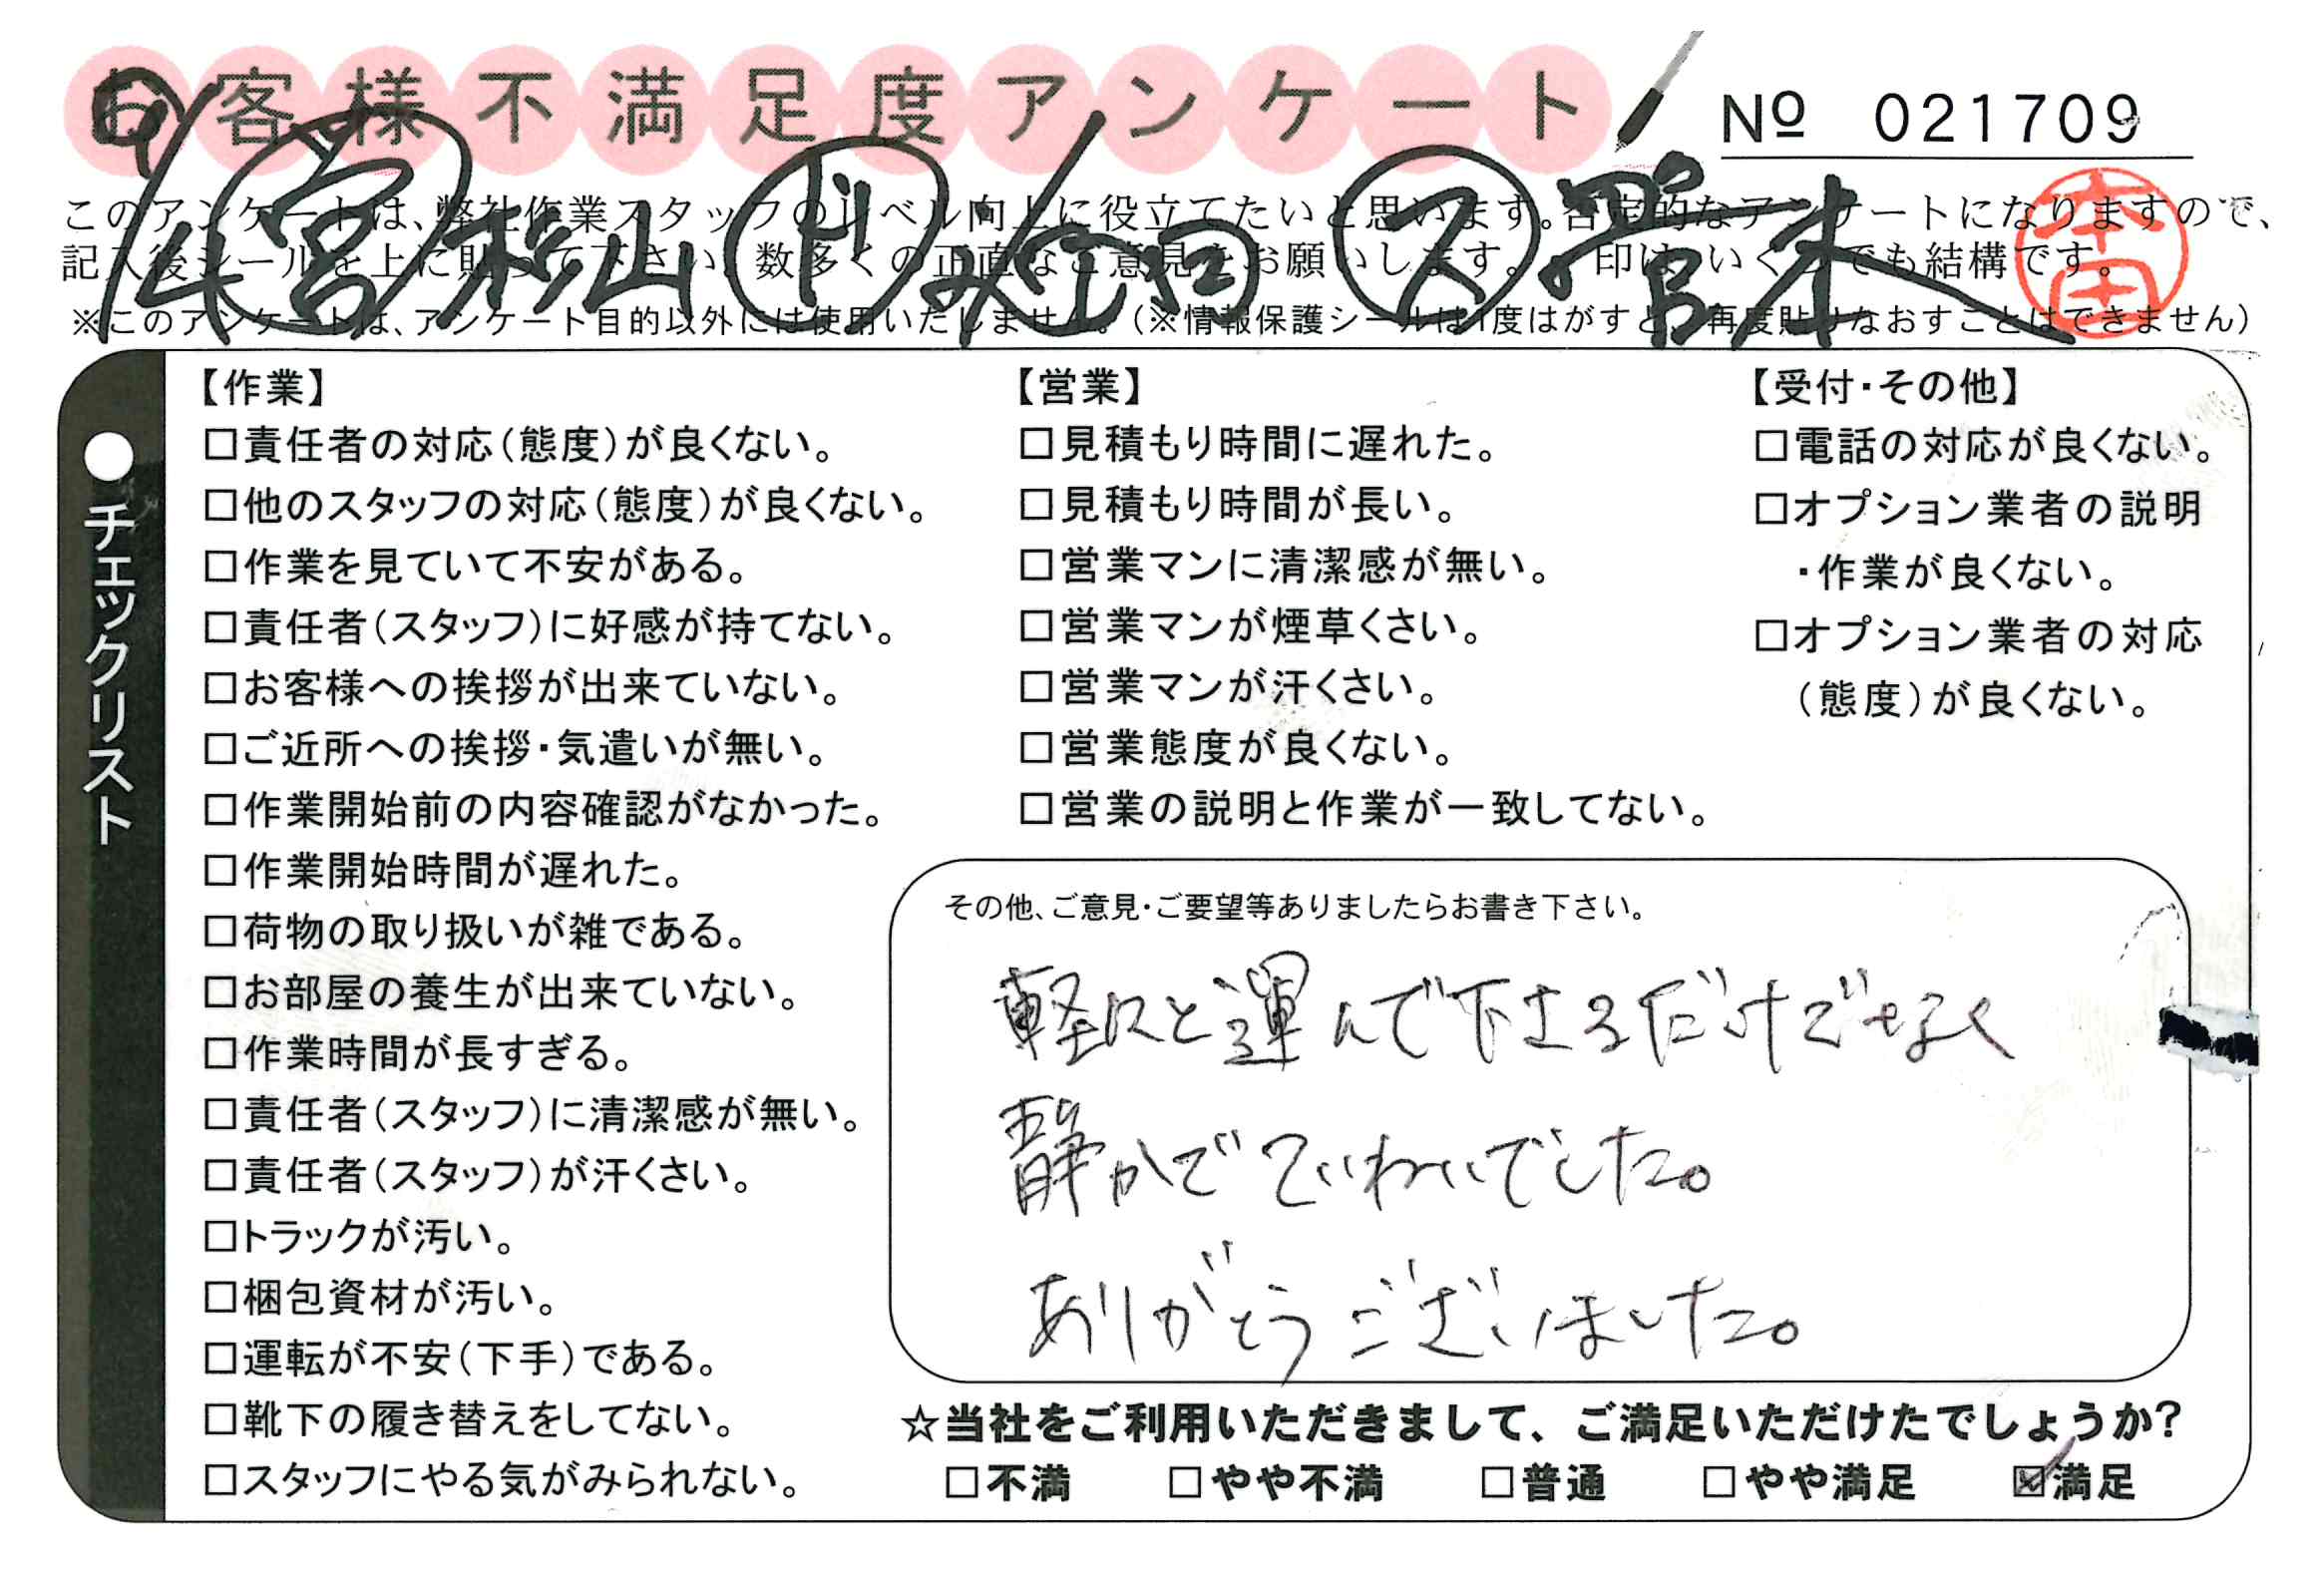 お客様不満足度アンケート
№ 021709
このアンケートは、弊社作業スタッフのレベル向上に役立てたいと思います。否定的なアンケートになりますので、
記入後シールを上に貼って下さい。数多くの正直なご意見をお願いします。 印はいくつでも結構です。
※このアンケートは、アンケート目的以外には使用いたしません。(※情報保護シールは1度はがすと、再度貼りなおすことはできません)
9/14 営 杉山 ドリ ス
本田
●チェックリスト
【作業】
□責任者の対応(態度)が良くない。
□他のスタッフの対応(態度)が良くない。
□作業を見ていて不安がある。
□責任者(スタッフ)に好感が持てない。
□お客様への挨拶が出来ていない。
□ご近所への挨拶・気遣いが無い。
□作業開始前の内容確認がなかった。
□作業開始時間が遅れた。
□荷物の取り扱いが雑である。
□お部屋の養生が出来ていない。
□作業時間が長すぎる。
□責任者(スタッフ)に清潔感が無い。
□責任者(スタッフ)が汗くさい。
□トラックが汚い。
□梱包資材が汚い。
□運転が不安(下手)である。
□靴下の履き替えをしてない。
□スタッフにやる気がみられない。
【営業】
□見積もり時間に遅れた。
□見積もり時間が長い。
□営業マンに清潔感が無い。
□営業マンが煙草くさい。
□営業マンが汗くさい。
□営業態度が良くない。
□営業の説明と作業が一致してない。
【受付・その他】
□電話の対応が良くない。
□オプション業者の説明
・作業が良くない。
□オプション業者の対応
(態度)が良くない。
その他、ご意見・ご要望等ありましたらお書き下さい。
軽々と運んで下さるだけでなく
静かでていねいでした。
ありがとうございました。
☆当社をご利用いただきまして、ご満足いただけたでしょうか?
□不満 □やや不満 □普通 □やや満足 ☑満足